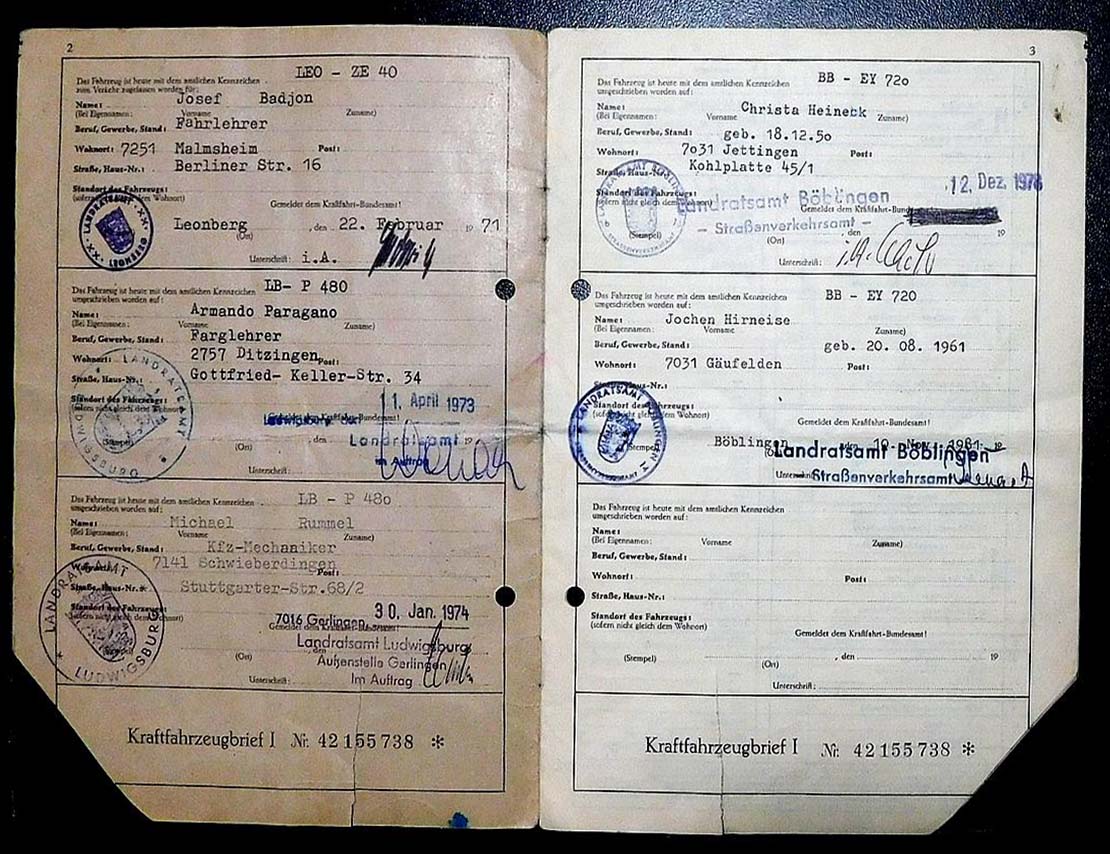 2
Das Fahrzeug ist heute mit dem amtlichen Kennzeichen LEO - ZE 40
zum Verkehr zugelassen worden für:
Name: Josef Badjon
(Bei Eigennamen: Vorname Zuname)
Beruf, Gewerbe, Stand: Fahrlehrer
Wohnort: 7251 Malmsheim Post:
Straße, Haus-Nr.: Berliner Str. 16
Standort des Fahrzeugs:
(sofern nicht gleich dem Wohnort)
Gemeldet dem Kraftfahrt-Bundesamt!
Leonberg, den 22. Februar 1971
(Ort)
Unterschrift: i.A.
LANDRATSAMT LEONBERG
Das Fahrzeug ist heute mit dem amtlichen Kennzeichen LB- P 480
umgeschrieben worden auf:
Name: Armando Paragano
(Bei Eigennamen: Vorname Zuname)
Beruf, Gewerbe, Stand: Farglehrer
Wohnort: 2757 Ditzingen Post:
Straße, Haus-Nr.: Gottfried- Keller-Str. 34
Standort des Fahrzeugs:
(sofern nicht gleich dem Wohnort)
11. April 1973
Ludwigsburg, den
Gemeldet dem Kraftfahrt-Bundesamt!
(Stempel) (Ort) , den 19
Landratsamt
im Auftrag
Unterschrift:
LANDRATSAMT LUDWIGSBURG
Das Fahrzeug ist heute mit dem amtlichen Kennzeichen LB - P 48o
umgeschrieben worden auf:
Name: Michael Rummel
(Bei Eigennamen: Vorname Zuname)
Beruf, Gewerbe, Stand: Kfz-Mechaniker
Wohnort: 7141 Schwieberdingen Post:
Straße, Haus-Nr.: Stuttgarter-Str.68/2
Standort des Fahrzeugs:
(sofern nicht gleich dem Wohnort)
7016 Gerlingen, 30. Jan. 1974
Gemeldet dem Kraftfahrt-Bundesamt!
Landratsamt Ludwigsburg
(Stempel) (Ort) , den
Außenstelle Gerlingen
Unterschrift: Im Auftrag
LANDRATSAMT LUDWIGSBURG
Kraftfahrzeugbrief I Nr. 42 155 738 *
3
Das Fahrzeug ist heute mit dem amtlichen Kennzeichen BB - EY 72o
umgeschrieben worden auf:
Name: Christa Heineck
(Bei Eigennamen: Vorname Zuname)
Beruf, Gewerbe, Stand: geb. 18.12.5o
Wohnort: 7o31 Jettingen Post:
Straße, Haus-Nr.: Kohlplatte 45/1
Standort des Fahrzeugs:
(sofern nicht gleich dem Wohnort)
12. Dez. 1978
Landratsamt Böblingen
Gemeldet dem Kraftfahrt-Bundesamt!
- Straßenverkehrsamt -
(Stempel) (Ort) , den 19
Unterschrift: i.A.
LANDRATSAMT BÖBLINGEN STRASSENVERKEHRSAMT
Das Fahrzeug ist heute mit dem amtlichen Kennzeichen BB - EY 720
umgeschrieben worden auf:
Name: Jochen Hirneise
(Bei Eigennamen: Vorname Zuname)
Beruf, Gewerbe, Stand: geb. 20. 08. 1961
Wohnort: 7031 Gäufelden Post:
Straße, Haus-Nr.:
Standort des Fahrzeugs:
(sofern nicht gleich dem Wohnort)
Gemeldet dem Kraftfahrt-Bundesamt!
Böblingen, den 10. Nov. 1981 19
(Stempel) (Ort)
Landratsamt Böblingen
Unterschrift:
Straßenverkehrsamt
LANDRATSAMT BÖBLINGEN
Das Fahrzeug ist heute mit dem amtlichen Kennzeichen
umgeschrieben worden auf:
Name:
(Bei Eigennamen: Vorname Zuname)
Beruf, Gewerbe, Stand:
Wohnort: Post:
Straße, Haus-Nr.:
Standort des Fahrzeugs:
(sofern nicht gleich dem Wohnort)
Gemeldet dem Kraftfahrt-Bundesamt!
(Stempel) (Ort) , den 19
Unterschrift:
Kraftfahrzeugbrief I Nr. 42 155 738 *